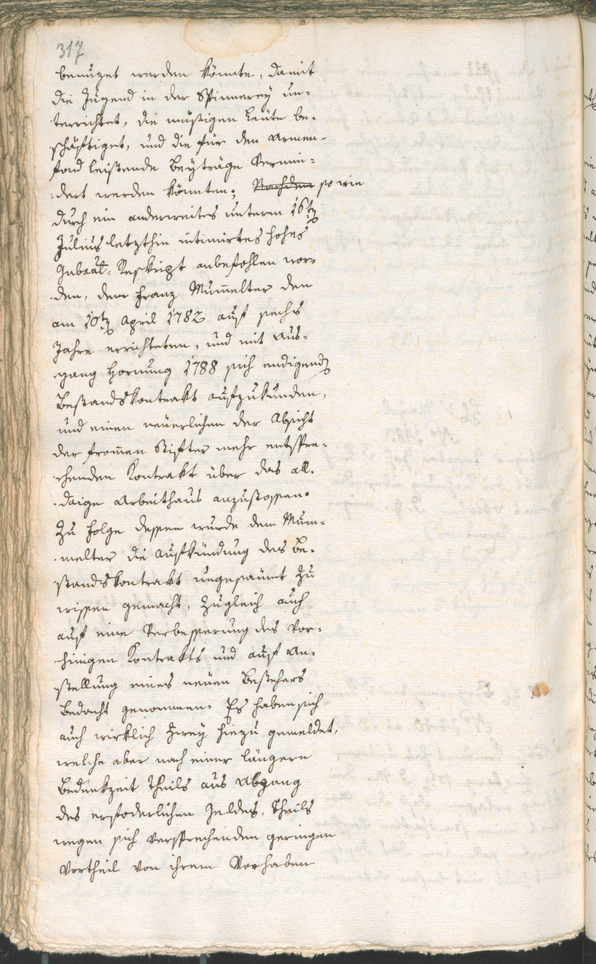 317
benuzet werden könnte, damit
die Jugend in der Spinnerey un-
terrichtet, die müßigen Leute be-
schäftiget, und die für den Armen-
fond leistende Beyträge vermin-
dert werden könnten; Nachdem so wie
durch ein anderweites unterm 16ten
Julius letzthin intimirtes hohes
Gubeal-Reskript anbefohlen wor-
den, dem Franz Mumelter den
am 10ten April 1782 auf sechs
Jahre errichteten, und mit Aus-
gang Hornung 1788 sich endigenden
Bestandskontrakt aufzukünden,
und einen neuerlichen der Absicht
der fromen Stifter mehr entspre-
chenden Kontrakt über das all-
daige Arbeithaus anzustossen.
Zu Folge dessen wurde dem Mum-
melter die Aufkündung des Be-
standskontrakt ungesäumt zu
wissen gemacht, zugleich auch
auf eine Verbesserung des vor-
hinigen Kontrakts und auf An-
stellung eines neuen Bestehers
Bedacht genommen. Es haben sich
auch wirklich zwey hiezu gemeldet,
welche aber nach einer längern
Bedenkzeit theils aus Abgang
des erfoderlichen Geldes, theils
wegen sich versprechenden geringen
Vortheil von ihrem Vorhaben